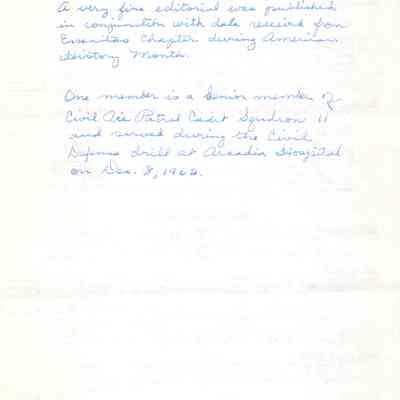 A very fine editorial was published
in conjunction with data received from
Chapter during American
History Month.
One member is a Senior member of
Civil Air Patrol Cadet Squdron 11
and served during the Civil
Defense drill at Arcadia Hospital
on Dec. 8, 1962.